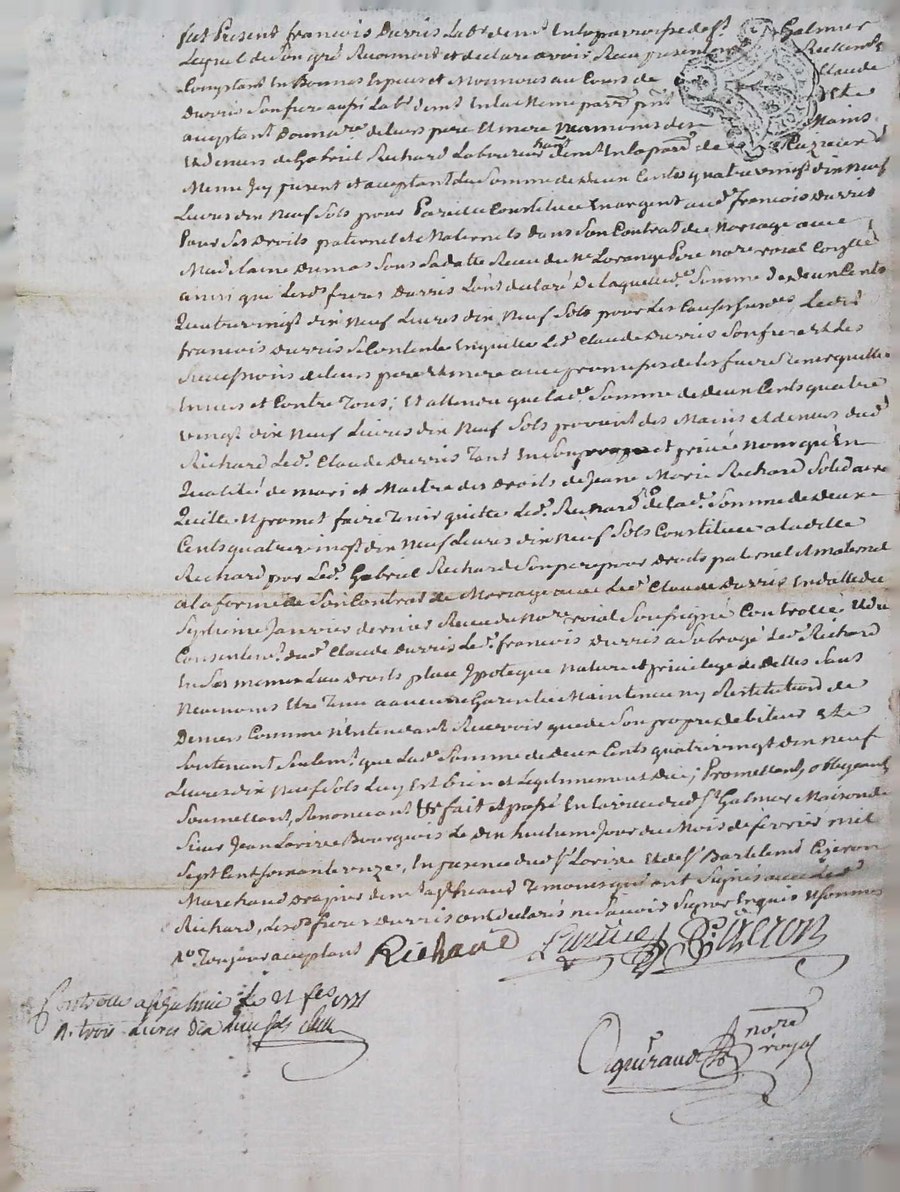 fut Present francois Durris Lab.r dem.t En la parroisse de s.t Galmier
Lequel de Son gré Reconnoit et declare avoir Recu presentem.t Reellem.t
Comptant En Bonnes Especes et Monnoies au Cours de Claude
Durris Son frere aussi Lab.r dem.t En la Meme parr.e pnt Et
acceptant Donnaire de leurs pere Et mere neanmoins des Mains
Et deniers de Gabriel Richard Laboureur dem.t En la parr.e de
Meme Icy present et acceptant La Somme de deux Cents quatre vingt dix Neuf
Livres dix Neuf Sols pour Pareille Constituée En argent aud.t francois Durris
Pour Ses Droits paternel et Maternels dans Son Contrat de Mariage avec
Madelaine Dumas Sous Sa datte Recu de M.e Lorange Pere no.re roial
ainsi que Lesd. freres Durris L'ont declaré De laquelle d. Somme de deux Cents
Quatre vingt dix Neuf Livres dix Neuf Sols pour Les Causes Susd. Led.t
francois Durris Se Contente En quitte Led. Claude Durris Son frere Et Les
Successions de leurs pere Et mere avec promesses de les faire Tenir quittes
Envers et Contre Tous; Et attendu que lad. Somme de deux Cents quatre
vingt dix Neuf Livres dix Neuf Sols provient des Mains et deniers dud.
Richard Led. Claude Durris Tant En Son propre et privé Nom qu'En
Qualité de mari et Maitre des Droits de Jeane Marie Richard Solidaire
Quitte Et promet faire Tenir quitte Led. Richard de lad. Somme de deux
Cents quatre vingt dix Neuf Livres dix Neuf Sols Constituée a ladite
Richard par Led. Gabriel Richard Son pere pour Droits paternel et maternel
a la forme de Son Contrat de Mariage avec Led. Claude Durris En datte du
Septieme Janvier dernier Recu du No.re roial Soussigné Controllé, Et du
Consentem.t dud. Claude Durris Led. francois Durris a Subrogé Led. Richard
En Ses memes Lieu Droits place Ypoteque Nature et privilege de dettes Sans
Neanmoins Etre Tenu a aucune Garentie Maintenue ny Restitution de
Deniers Comme n'Entendant Recevoir que de Son propre debiteur Et Le
Soutenant Seulem.t que Lad. Somme de deux Cents quatre vingt dix Neuf
Livres dix Neuf Sols Luy Est bien et Legitimement due; Promettant, obligeant,
Soumettant, Renoncant &c fait et passé En la ville dud. S.t Galmier Maison de
Sieur Jean Bourgeois Le dix huitieme Jour du Mois de fevrier mil
Sept Cent soixante onze, En presence dud. s.r Et de s.r Bartelemi Cizeron
Marchand Drapier dem.t a s.t Temoins qui ont Signés avec Led.
Richard, Les d. freres Durris ont declarés ne Scavoir Signer Enquis Et Sommés
Richard Cizeron
Controllé a St Galmier Le 21 fev. 1771
R. trois Livres dix neuf sols
no.re
royal